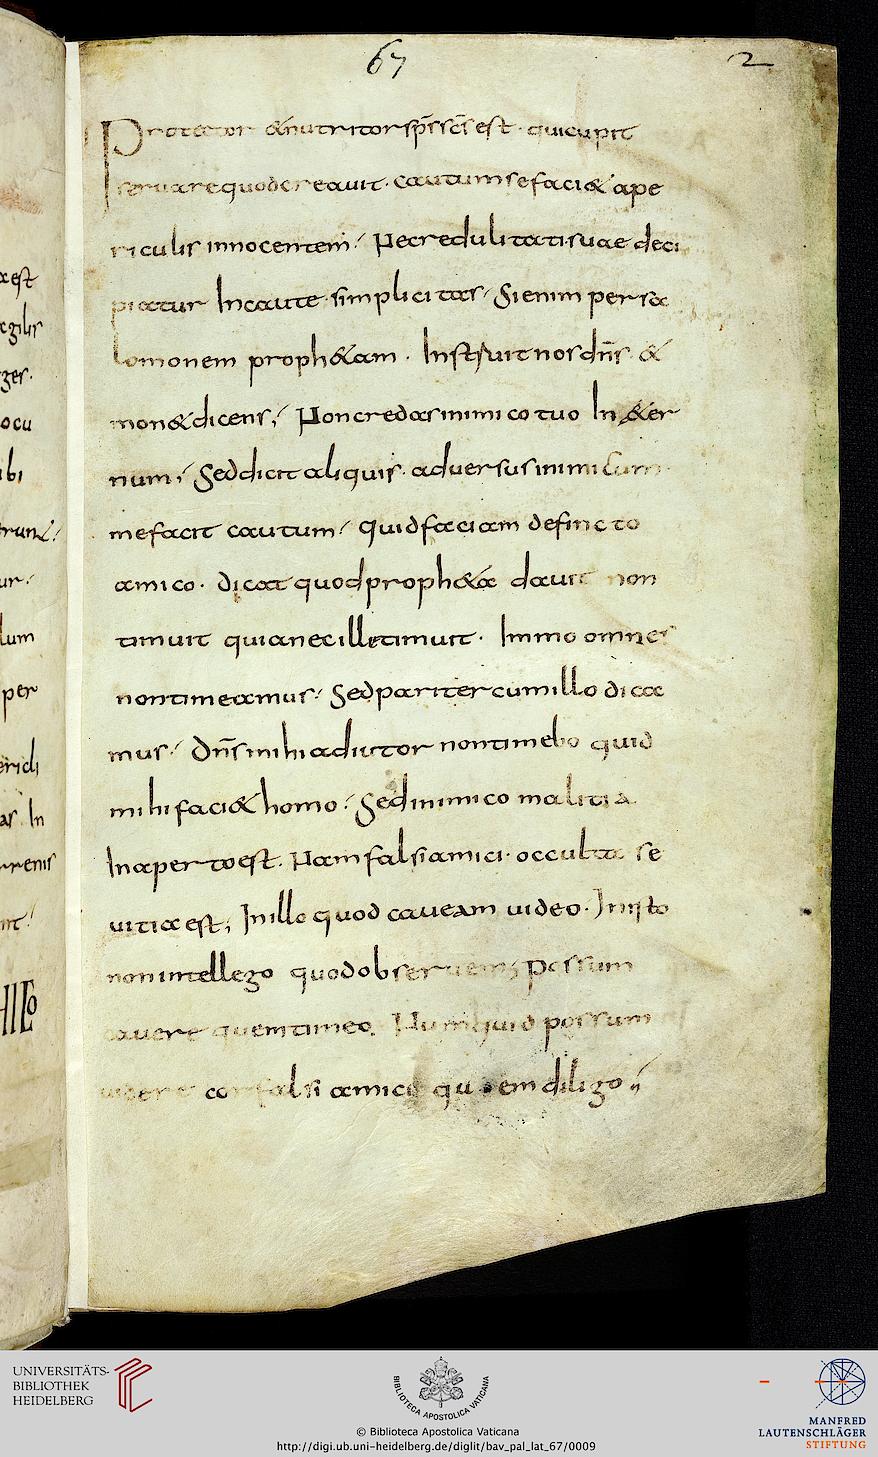 67 2
Protector & nutritor sp̄s sc̄s est · qui cupit
servare quod creavit · cautum se faci& ape
riculis innocentem / Ne credulitatis uae deci
piatur Incaute · simplicitas / Si enim per sa
lomonem proph&am · Instruit nos dn̄s · &
mon& dicens ; Non credas inimico tuo In &er
num ; Sed dicit aliquis · adversus inimicum
me facit cautum / quid faciam de ficto
amico · dicat quod proph&a dauit non
timuit quia nec ille timuit · Immo omnes
non timeamus / Sed pariter cum illo dica
mus / Dn̄s mihi adiutor non timebo quid
mihi faci& homo / Sed inimico malitia
In aperto est · Nam falsi amici · occulta se
uitia est ; In illo quod caueam uideo · In isto
non intellego quod obseruem ; Possum
cauere quem timeo · Numquid possum
uidere cor falsi amici quem diligo ;
aest
agilis
ger·
ocu
ibi
ur·
lum
per
as In
rrenis
UNIVERSITÄTS-
BIBLIOTHEK
HEIDELBERG
BIBLIOTECA APOSTOLICA VATICANA
© Biblioteca Apostolica Vaticana
http://digi.ub.uni-heidelberg.de/diglit/bav_pal_lat_67/0009
MANFRED
LAUTENSCHLÄGER
STIFTUNG